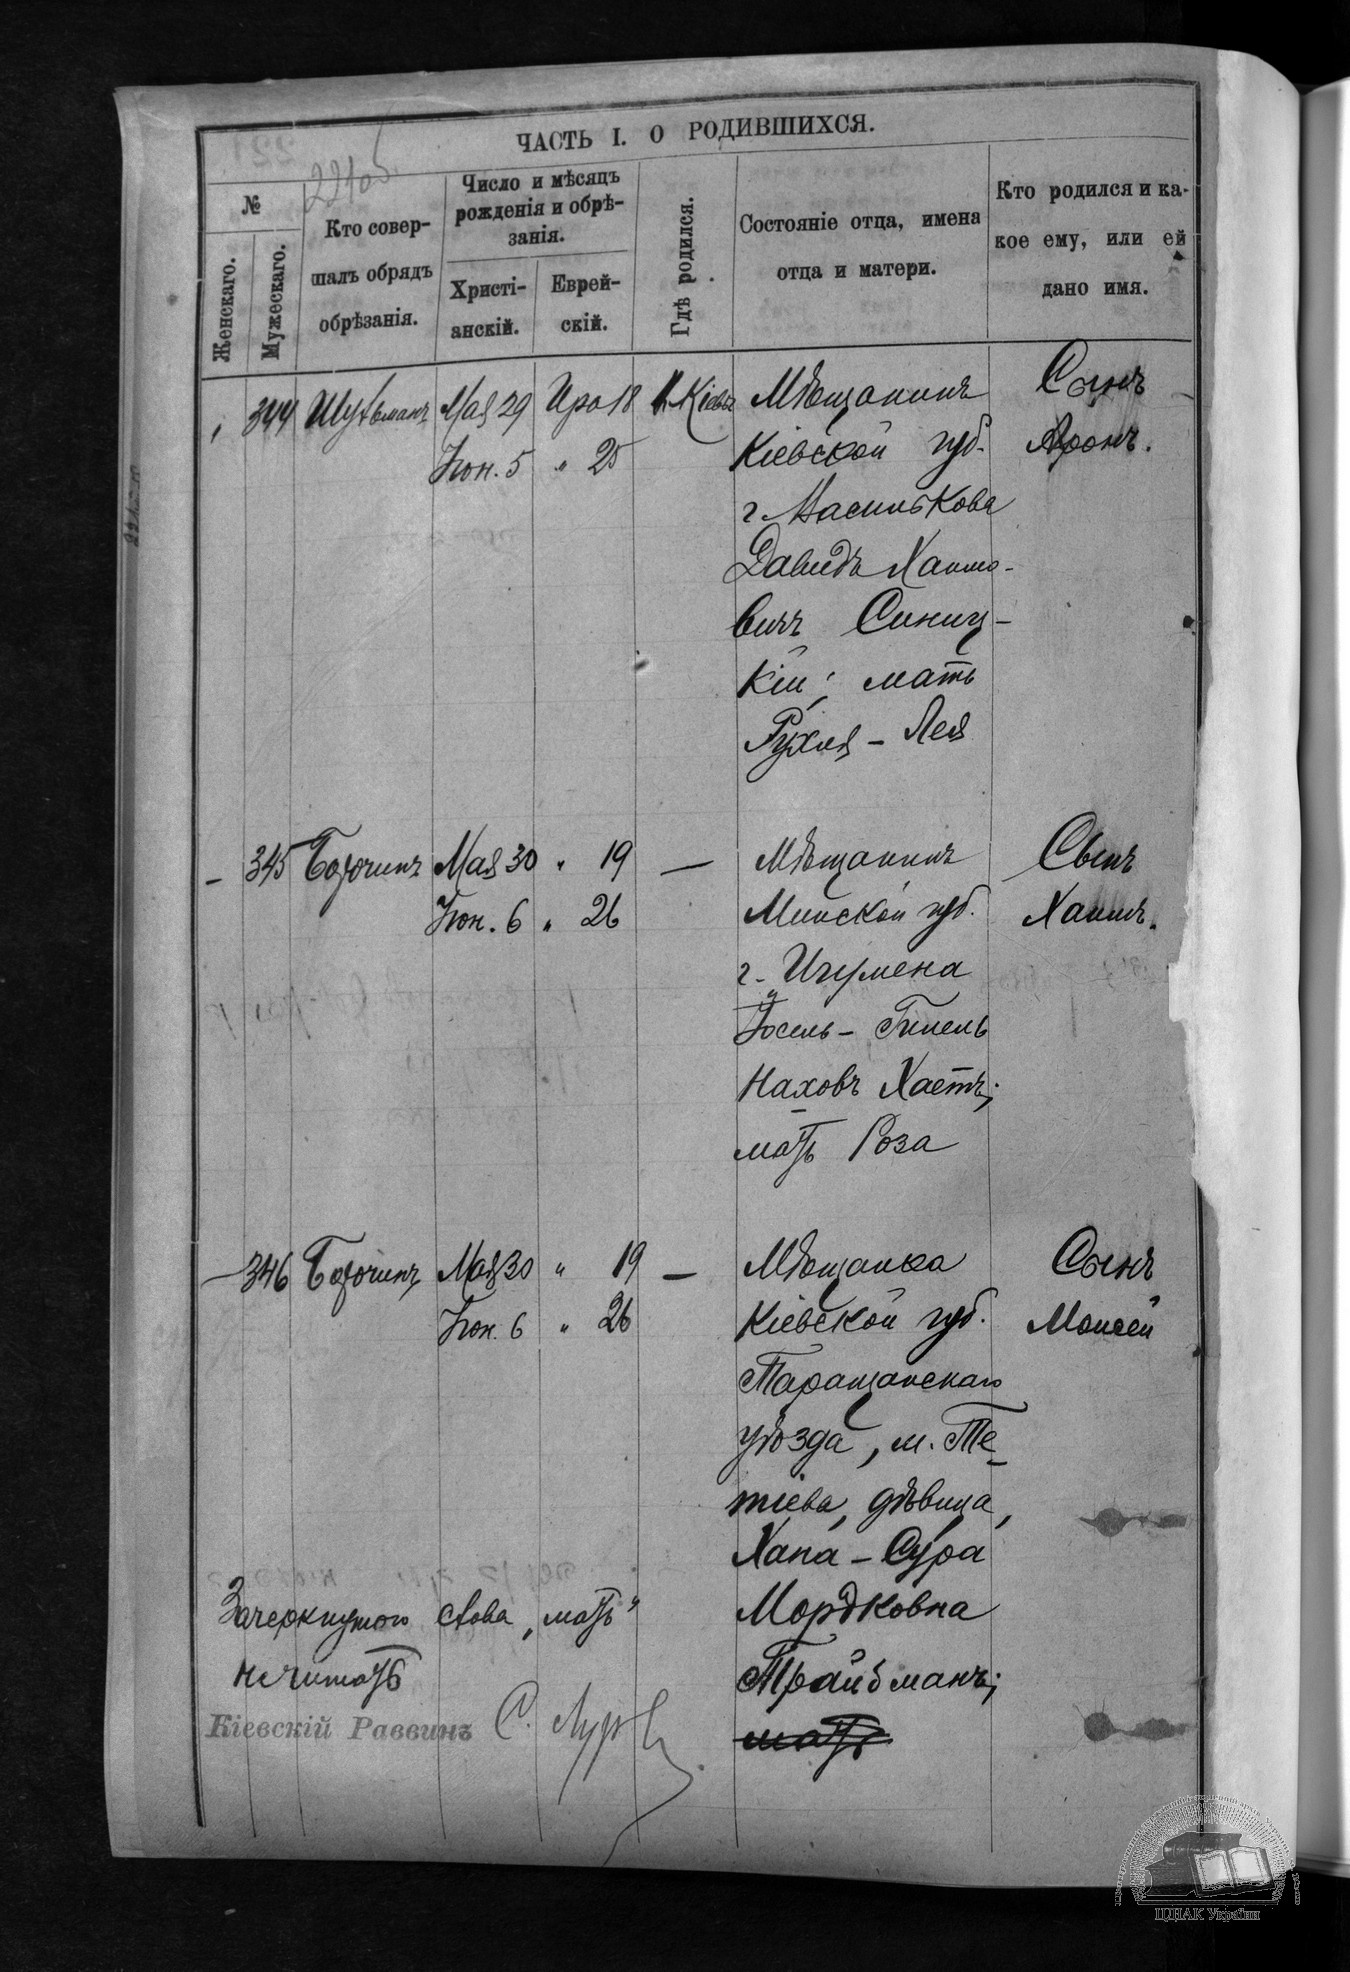 ЧАСТЬ I. О РОДИВШИХСЯ.
№
Женскаго.
Мужескаго.
Кто совер-
шалъ обрядъ
обрѣзанія.
Число и мѣсяцъ
рожденія и обрѣ-
занія.
Христі-
анскій.
Еврей-
скій.
Гдѣ родился.
Состояніе отца, имена
отца и матери.
Кто родился и ка-
кое ему, или ей
дано имя.
344 Шухманъ Мая 29 Иро 18 г. Кіевъ Мѣщанинъ Сынъ
Іюн. 5 " 25 Кіевской губ. Аронъ.
г. Василькова
Давидъ Хаимо-
вичъ Синиц-
кій; мать
Рухля - Лея
— 345 Мая 30 " 19 — Мѣщанинъ Сынъ
Іюн. 6 " 26 Минской губ. Хаимъ.
г. Игумена
Іосель - Гилель
Наховъ Хаетъ;
мать Роза
— 346 Мая 30 " 19 — Мѣщанка Сынъ
Іюн. 6 " 26 Кіевской губ. Моисей
Таращанскаго
уѣзда, м. Те-
тіева, дѣвица,
Хана - Сура
Зачеркнутого слова „мать" Мордковна
не читать Трайбманъ;
Кіевскій Раввинъ С. Лурье мать
ЦДІАК України